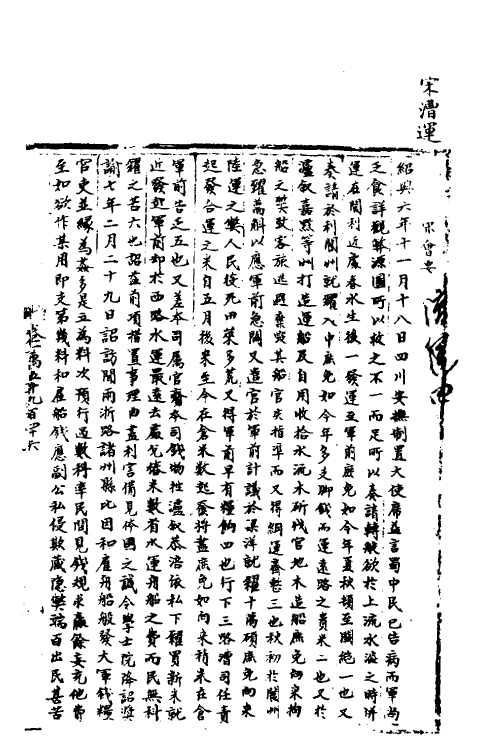 宋漕運
宋會要
紹興六年十一月十八日四川安撫制置大使席益言蜀中民已告病而軍尚
乏食詳觀弊源圖所以救之不一而足所以奏請轉般欲於上流水溢之時併
運在閬利近處春水生後一發運至軍前庶免如今年夏秋頓至闕絶一也又
奏請於利閬州就糴入中庶免如今年多支腳錢而運遠路之貴米二也又於
瀘叙嘉黔等州打造運船及自用收拾水流木斫伐官地木造船庶免向來拘
船之弊致客旅逃避棄毀其船官失指準而又得綱運齊整三也秋初於閬州
急糴萬斛以應軍前急闕又遣官於軍前計議於梁洋就糴十萬碩庶免向來
陸運之弊人民役死田萊多荒又得軍前早有糧餉四也行下三路漕司任責
起發合運之米自五月後來至今在倉米數起發將盡庶免如向來積米在倉
軍前告乏五也又差本司屬官齎本司錢物往瀘叙恭涪依私下糴買新米就
近發赴軍前却於西路水運最遠去處兌椿米數省水運舟船之費而民無科
糴之苦六也詔益前項措置事理曲盡利害備見體國之誠令學士院降詔奬
諭七年二月二十九日詔訪聞兩浙路諸州縣比因和雇舟船般發大軍錢糧
官吏並緣為姦多是立為料次預行過數科率民間見錢規求贏餘妄充他費
至如欲作某用即支第幾料和雇船錢應副公私侵欺藏隱弊端百出民甚苦